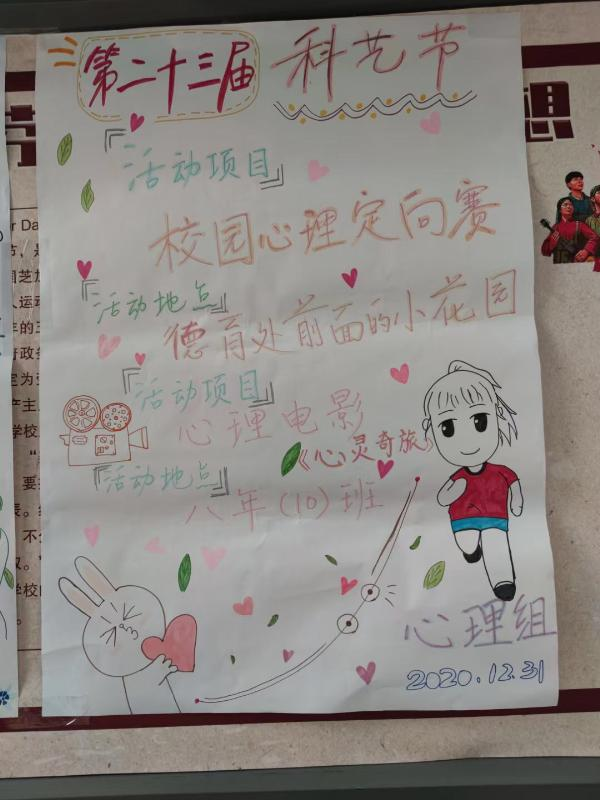 第二十三届 科艺节
『活动项目』
校园心理定向赛
『活动地点』
德育处前面的小花园
『活动项目』
心理电影
《心灵奇旅》
『活动地点』
八年(10)班
心理组
2020.12.31